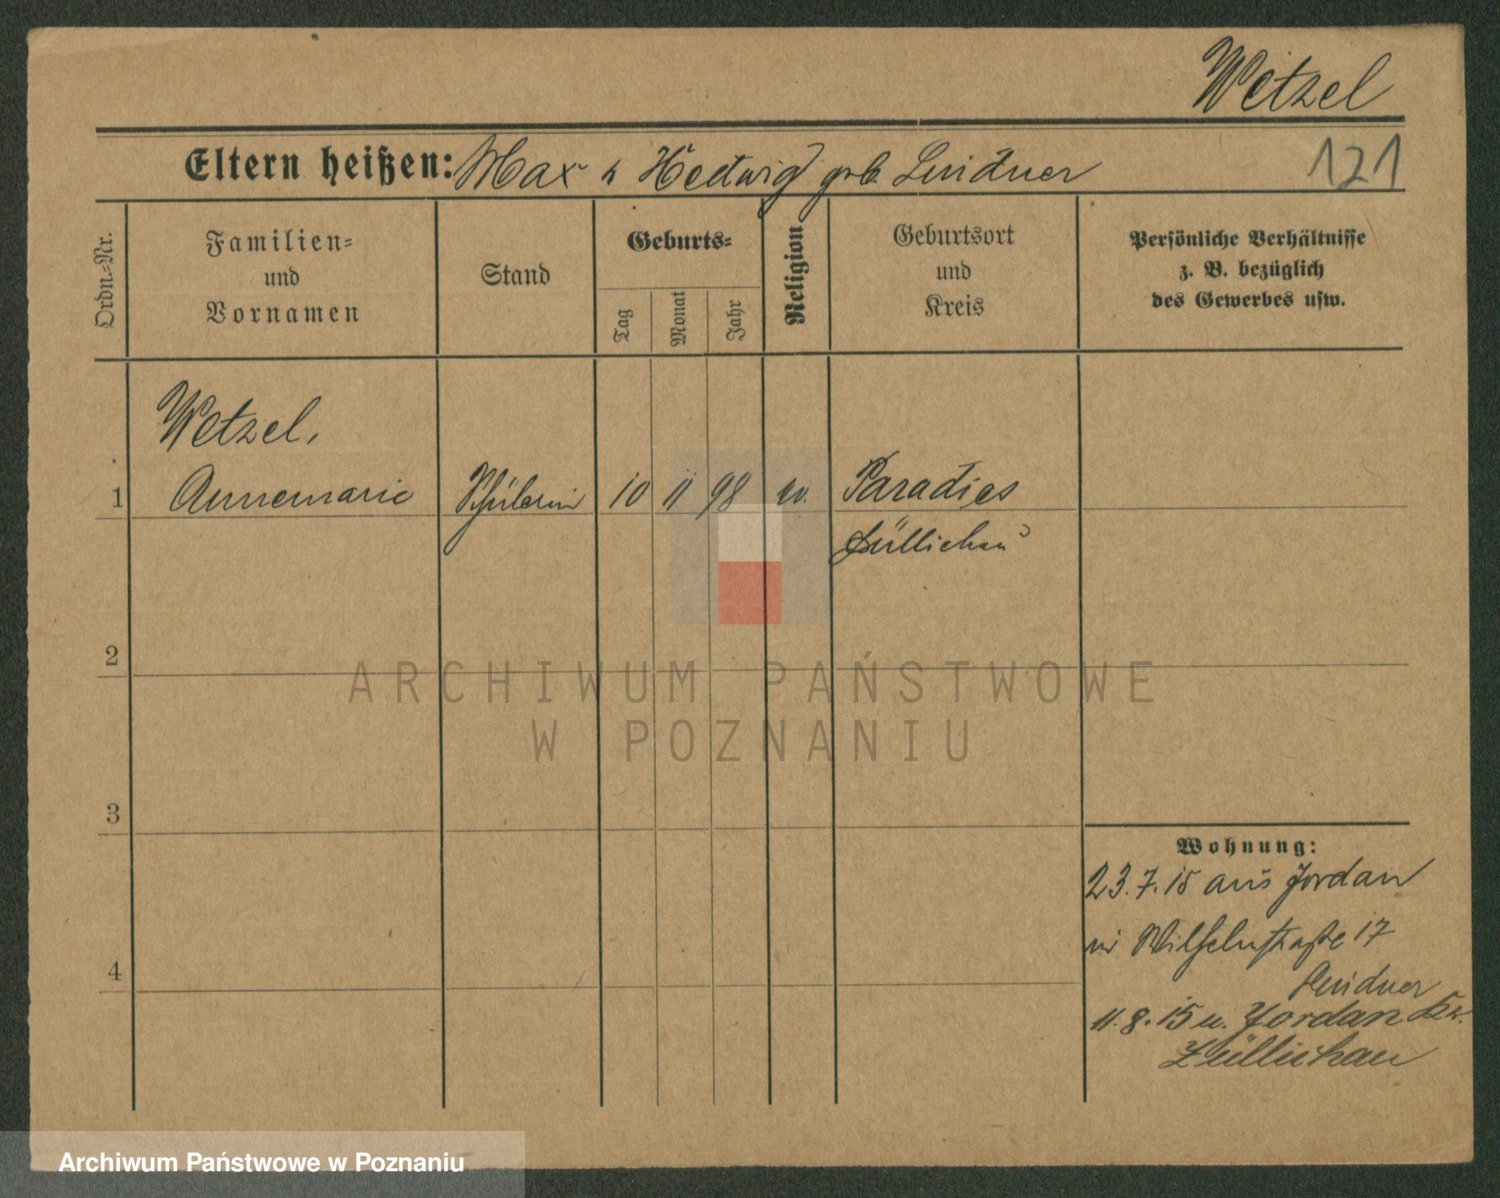 Wetzel
Eltern heißen: Max u Hedwig geb. Lindner
121
Ordn.-Nr.
Familien-
und
Vornamen
Stand
Geburts-
Tag
Monat
Jahr
Religion
Geburtsort
und
Kreis
Persönliche Verhältnisse
z. B. bezüglich
des Gewerbes usw.
Wetzel,
1 Annemarie Schülerin 10 11 98 Paradies
Züllichau
2
ARCHIWUM PAŃSTWOWE
W POZNANIU
3
Wohnung:
23.7.15 aus Jordan
in Wilhelmstraße 17
4
Lindner
11.8.15 n. Jordan Kr.
Züllichau
Archiwum Państwowe w Poznaniu